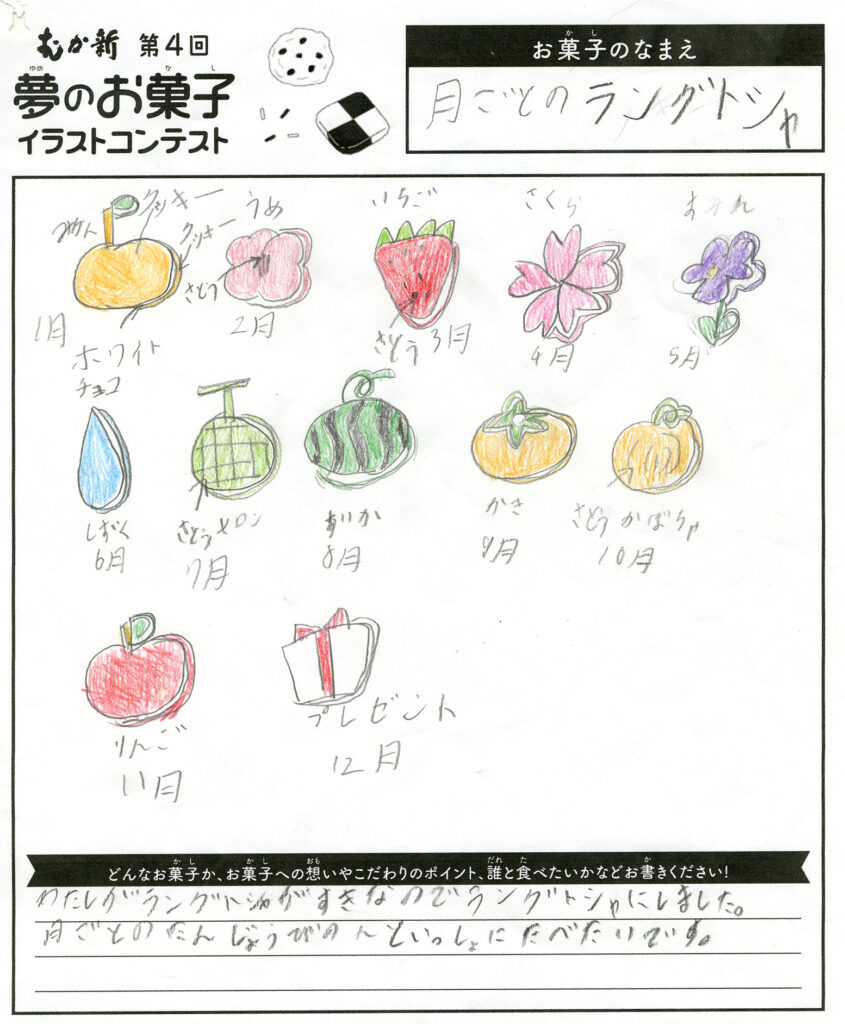 むか新 第4回
夢のお菓子
ゆめ かし
イラストコンテスト
お菓子のなまえ
かし
月ごとのラングドシャ
みかん
クッキー
クッキー
ホワイト
チョコ
1月
うめ
さとう
2月
いちご
さとう
3月
さくら
4月
すみれ
5月
しずく
6月
さとう
メロン
7月
すいか
8月
かき
9月
さとう
かぼちゃ
10月
りんご
11月
プレゼント
12月
どんなお菓子か、お菓子への想いやこだわりのポイント、誰と食べたいかなどお書きください!
かし かし おも だれ た か
わたしがラングドシャがすきなのでラングドシャにしました。
月ごとのたんじょうびの人といっしょにたべたいです。